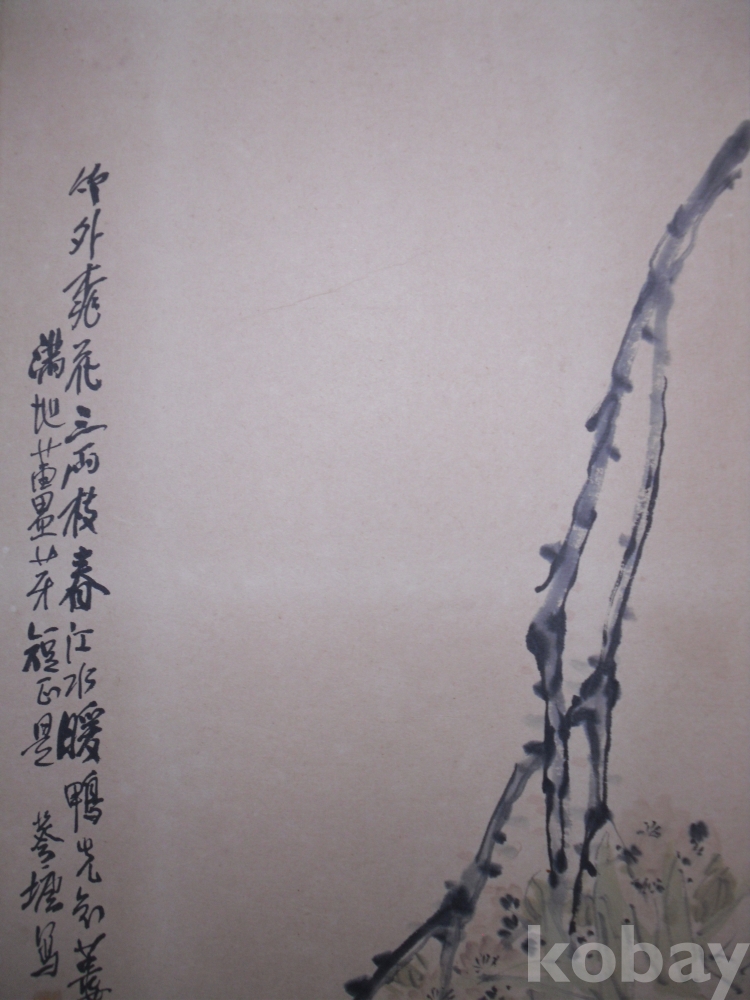 竹外桃花三兩枝春江水暖鴨先知蔞
滿地蘆芽短正是
葵塘寫
kobay